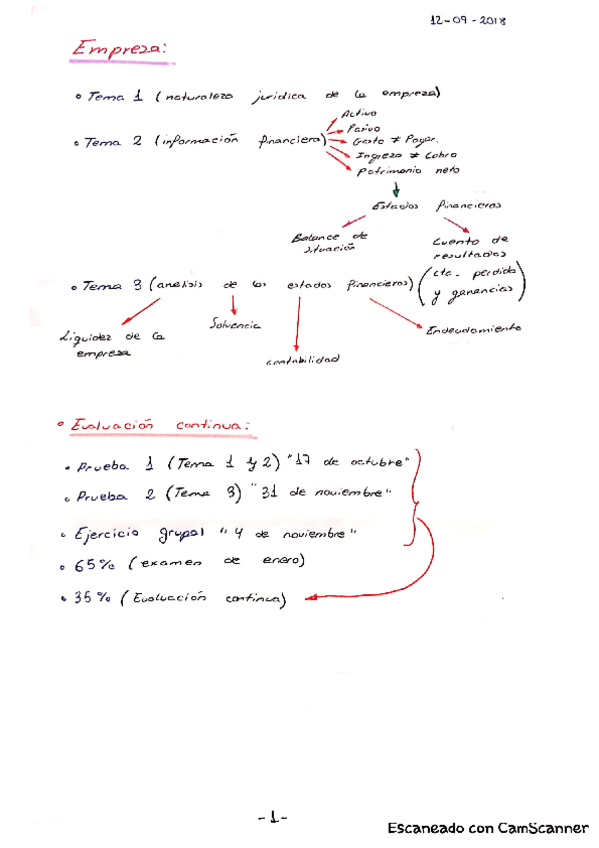 12-09-2018
Empresa:
• Tema 1 (naturaleza jurídica de la empresa)
• Tema 2 (información financiera)
Activo
Pasivo
Gasto ≠ Pagar.
Ingreso ≠ Cobro
Patrimonio neto
Estados financieros
Balance de situación
Cuenta de resultados
(cta. perdida y ganancias)
• Tema 3 (analisis de los estados financieros)
Liquidez de la empresa
Solvencia
contabilidad
Endeudamiento
• Evaluación continua:
• Prueba 1 (Tema 1 y 2) "17 de octubre"
• Prueba 2 (Tema 3) "31 de noviembre"
• Ejercicio grupal "4 de noviembre"
• 65% (examen de enero)
• 35% (Evaluación continua)
-1-
Escaneado con CamScanner